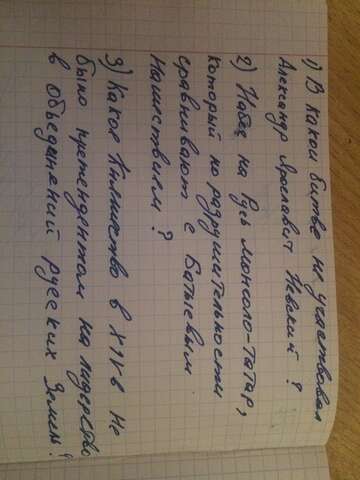 1) В какой битве не участвовал
Александр Ярославич Невский?
2) Набег на Русь монголо-татар,
который по разрушительности
сравнивают с Батыевым
Нашествием?
3) Какое Княжество в XIV в не
было претендентом на лидерство
в объеденений русских Земель?